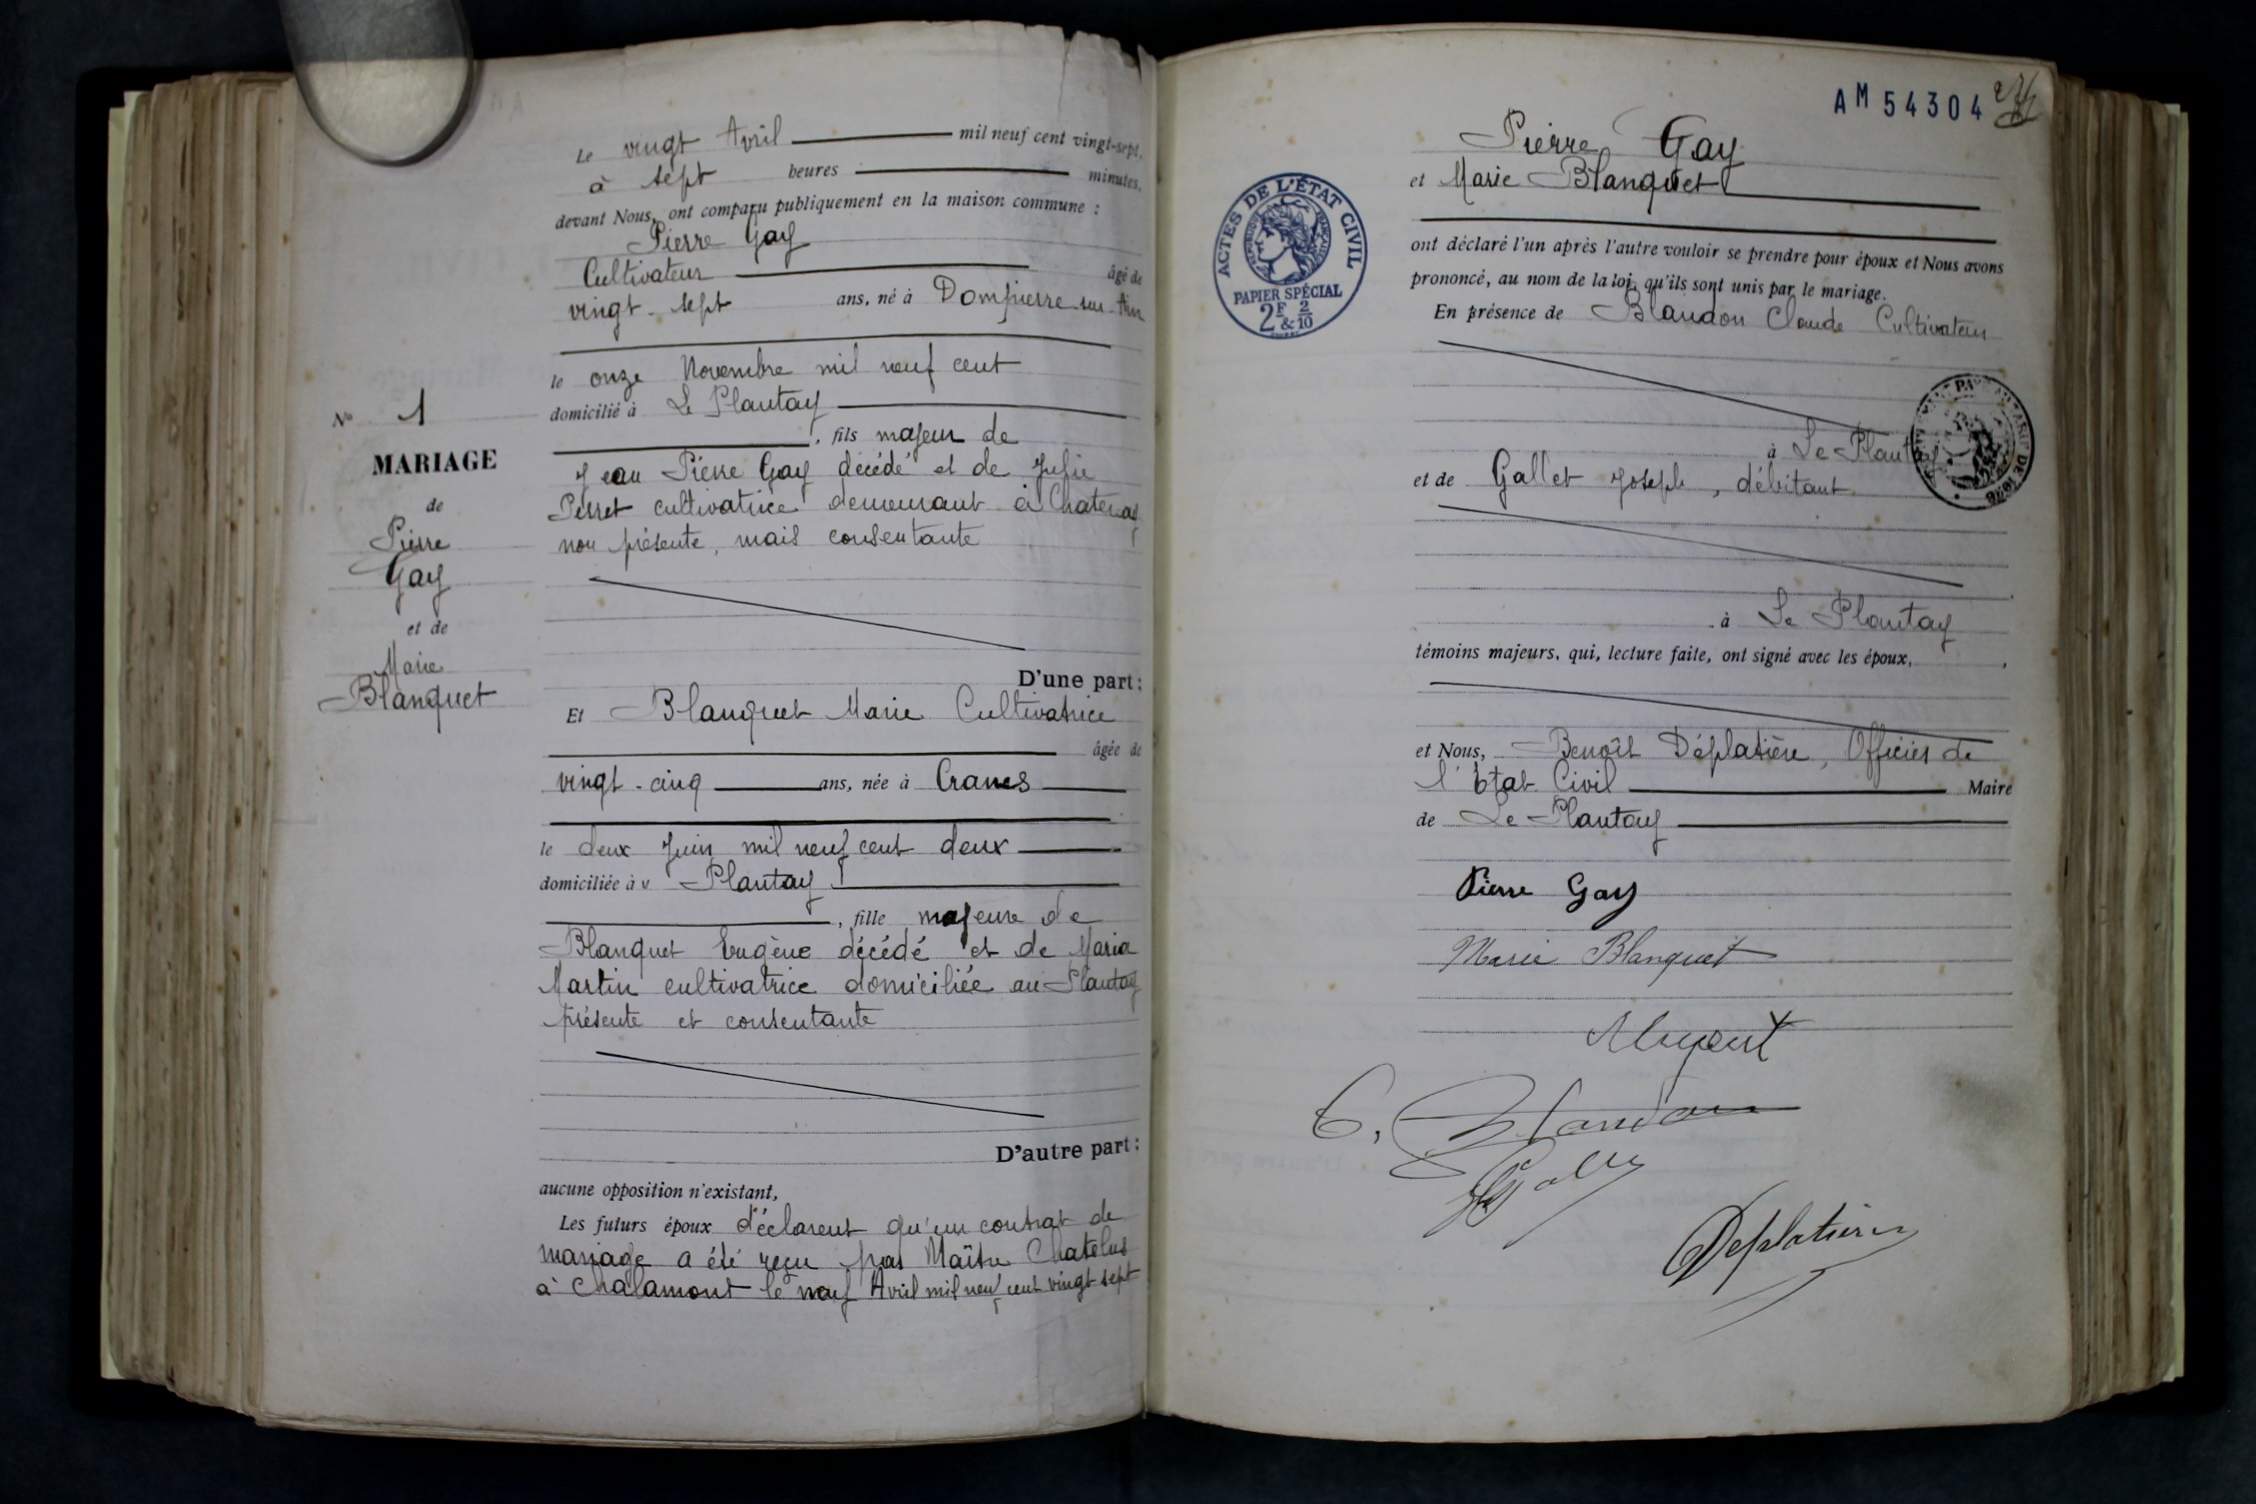 Le vingt Avril mil neuf cent vingt-sept,
à sept heures minutes,
devant Nous, ont comparu publiquement en la maison commune :
Pierre Gay
Cultivateur âgé de
vingt-sept ans, né à Dompierre-sur-Ain
le onze Novembre mil neuf cent
domicilié à Le Plantay
, fils majeur de
Jean Pierre Gay décédé et de Julie
Perret cultivatrice demeurant à Chatenay
non présente, mais consentante
D'une part :
Et Blanquet Marie Cultivatrice
âgée de
vingt-cinq ans, née à Crans
le deux Juin mil neuf cent deux
domiciliée à Plantay
, fille majeure de
Blanquet Eugène décédé et de Maria
Martin cultivatrice domiciliée au Plantay
présente et consentante
D'autre part :
aucune opposition n'existant,
Les futurs époux déclarent qu'un contrat de
mariage a été reçu par Maître Chatelus
à Chalamont le neuf Avril mil neuf cent vingt sept
No 1
MARIAGE
de
Pierre
Gay
et de
Marie
Blanquet
AM 54304
Pierre Gay
et Marie Blanquet
ont déclaré l'un après l'autre vouloir se prendre pour époux et Nous avons
prononcé, au nom de la loi, qu'ils sont unis par le mariage.
En présence de Blandon Claude Cultivateur
à Le Plantay
et de Gallet Joseph, débitant
à Le Plantay
témoins majeurs, qui, lecture faite, ont signé avec les époux,
et Nous, Benoît Déplatière, Officier de
l'Etat Civil Maire
de Le Plantay
Pierre Gay
Marie Blanquet
C. Blandon
Deplatière
ACTES DE L'ÉTAT CIVIL
RÉPUBLIQUE FRANÇAISE
PAPIER SPÉCIAL
2F & 2/10